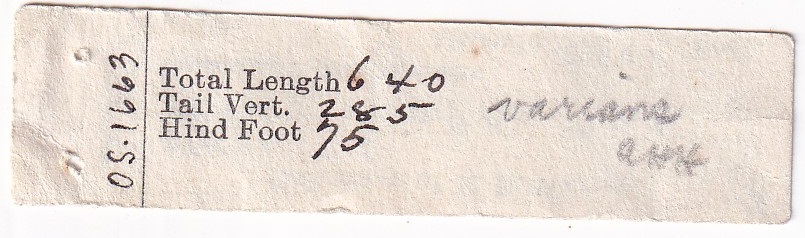 OS.1663
Total Length 640
Tail Vert. 285
Hind Foot 75
varians
AHH